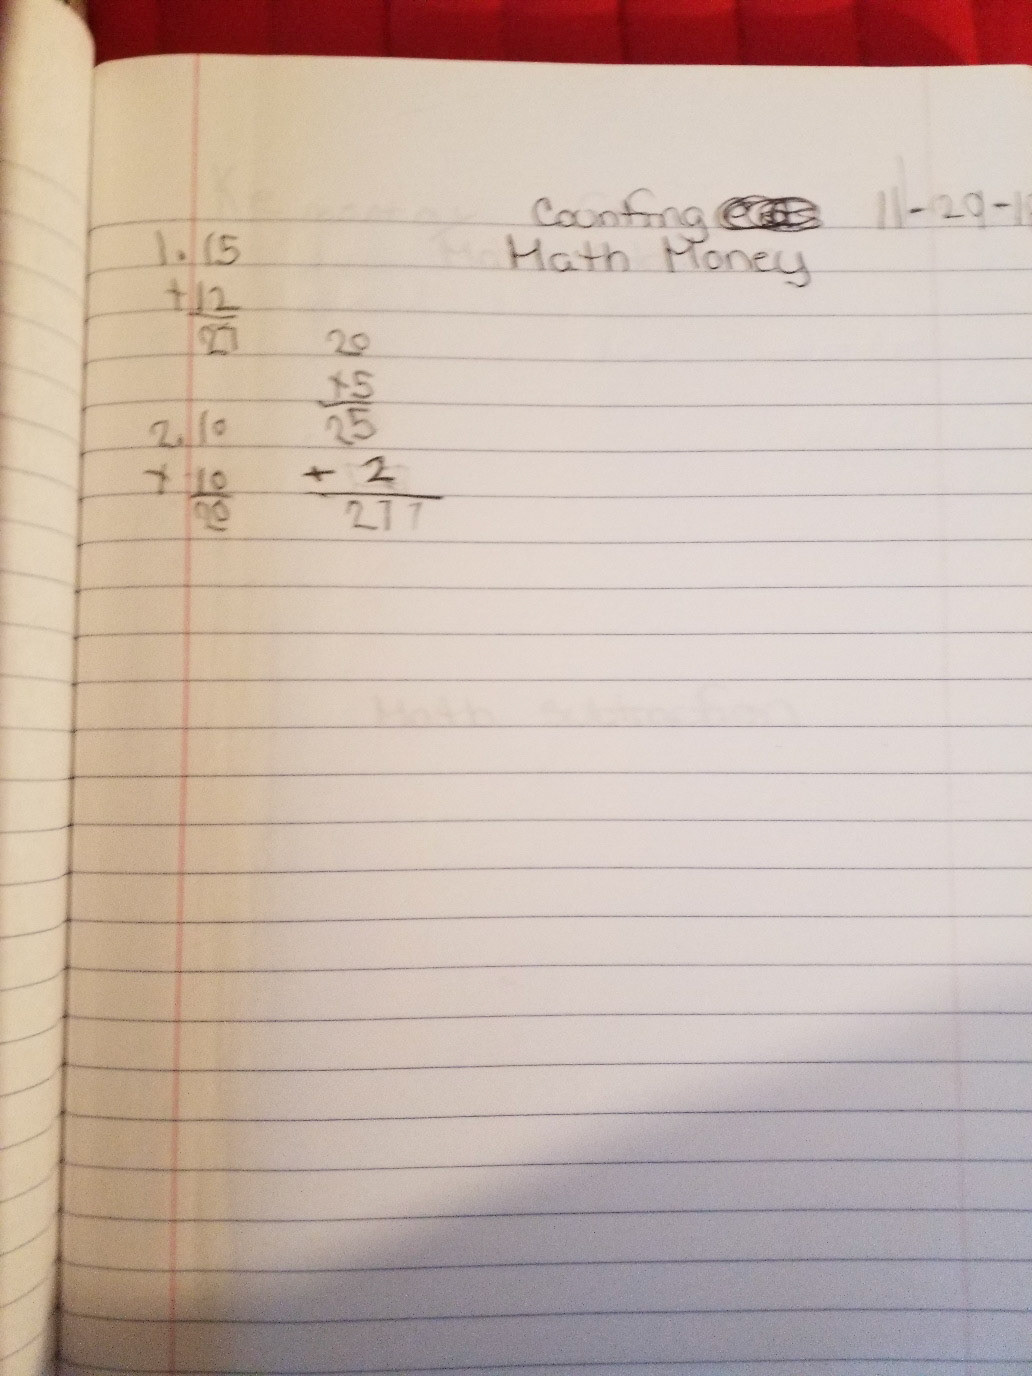 Counting 11-29-1
Math Money
1. 15
+12
27
20
+5
25
+ 2
277
2. 10
+ 10
20